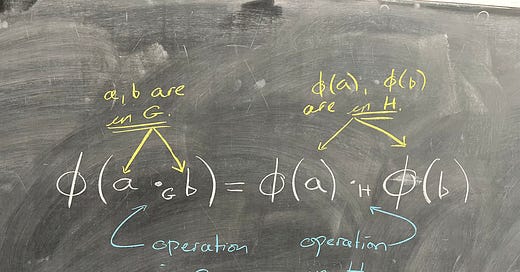 a, b are
in G.
ϕ(a), ϕ(b)
are in H.
ϕ(a ·G b) = ϕ(a) ·H ϕ(b)
operation
operation